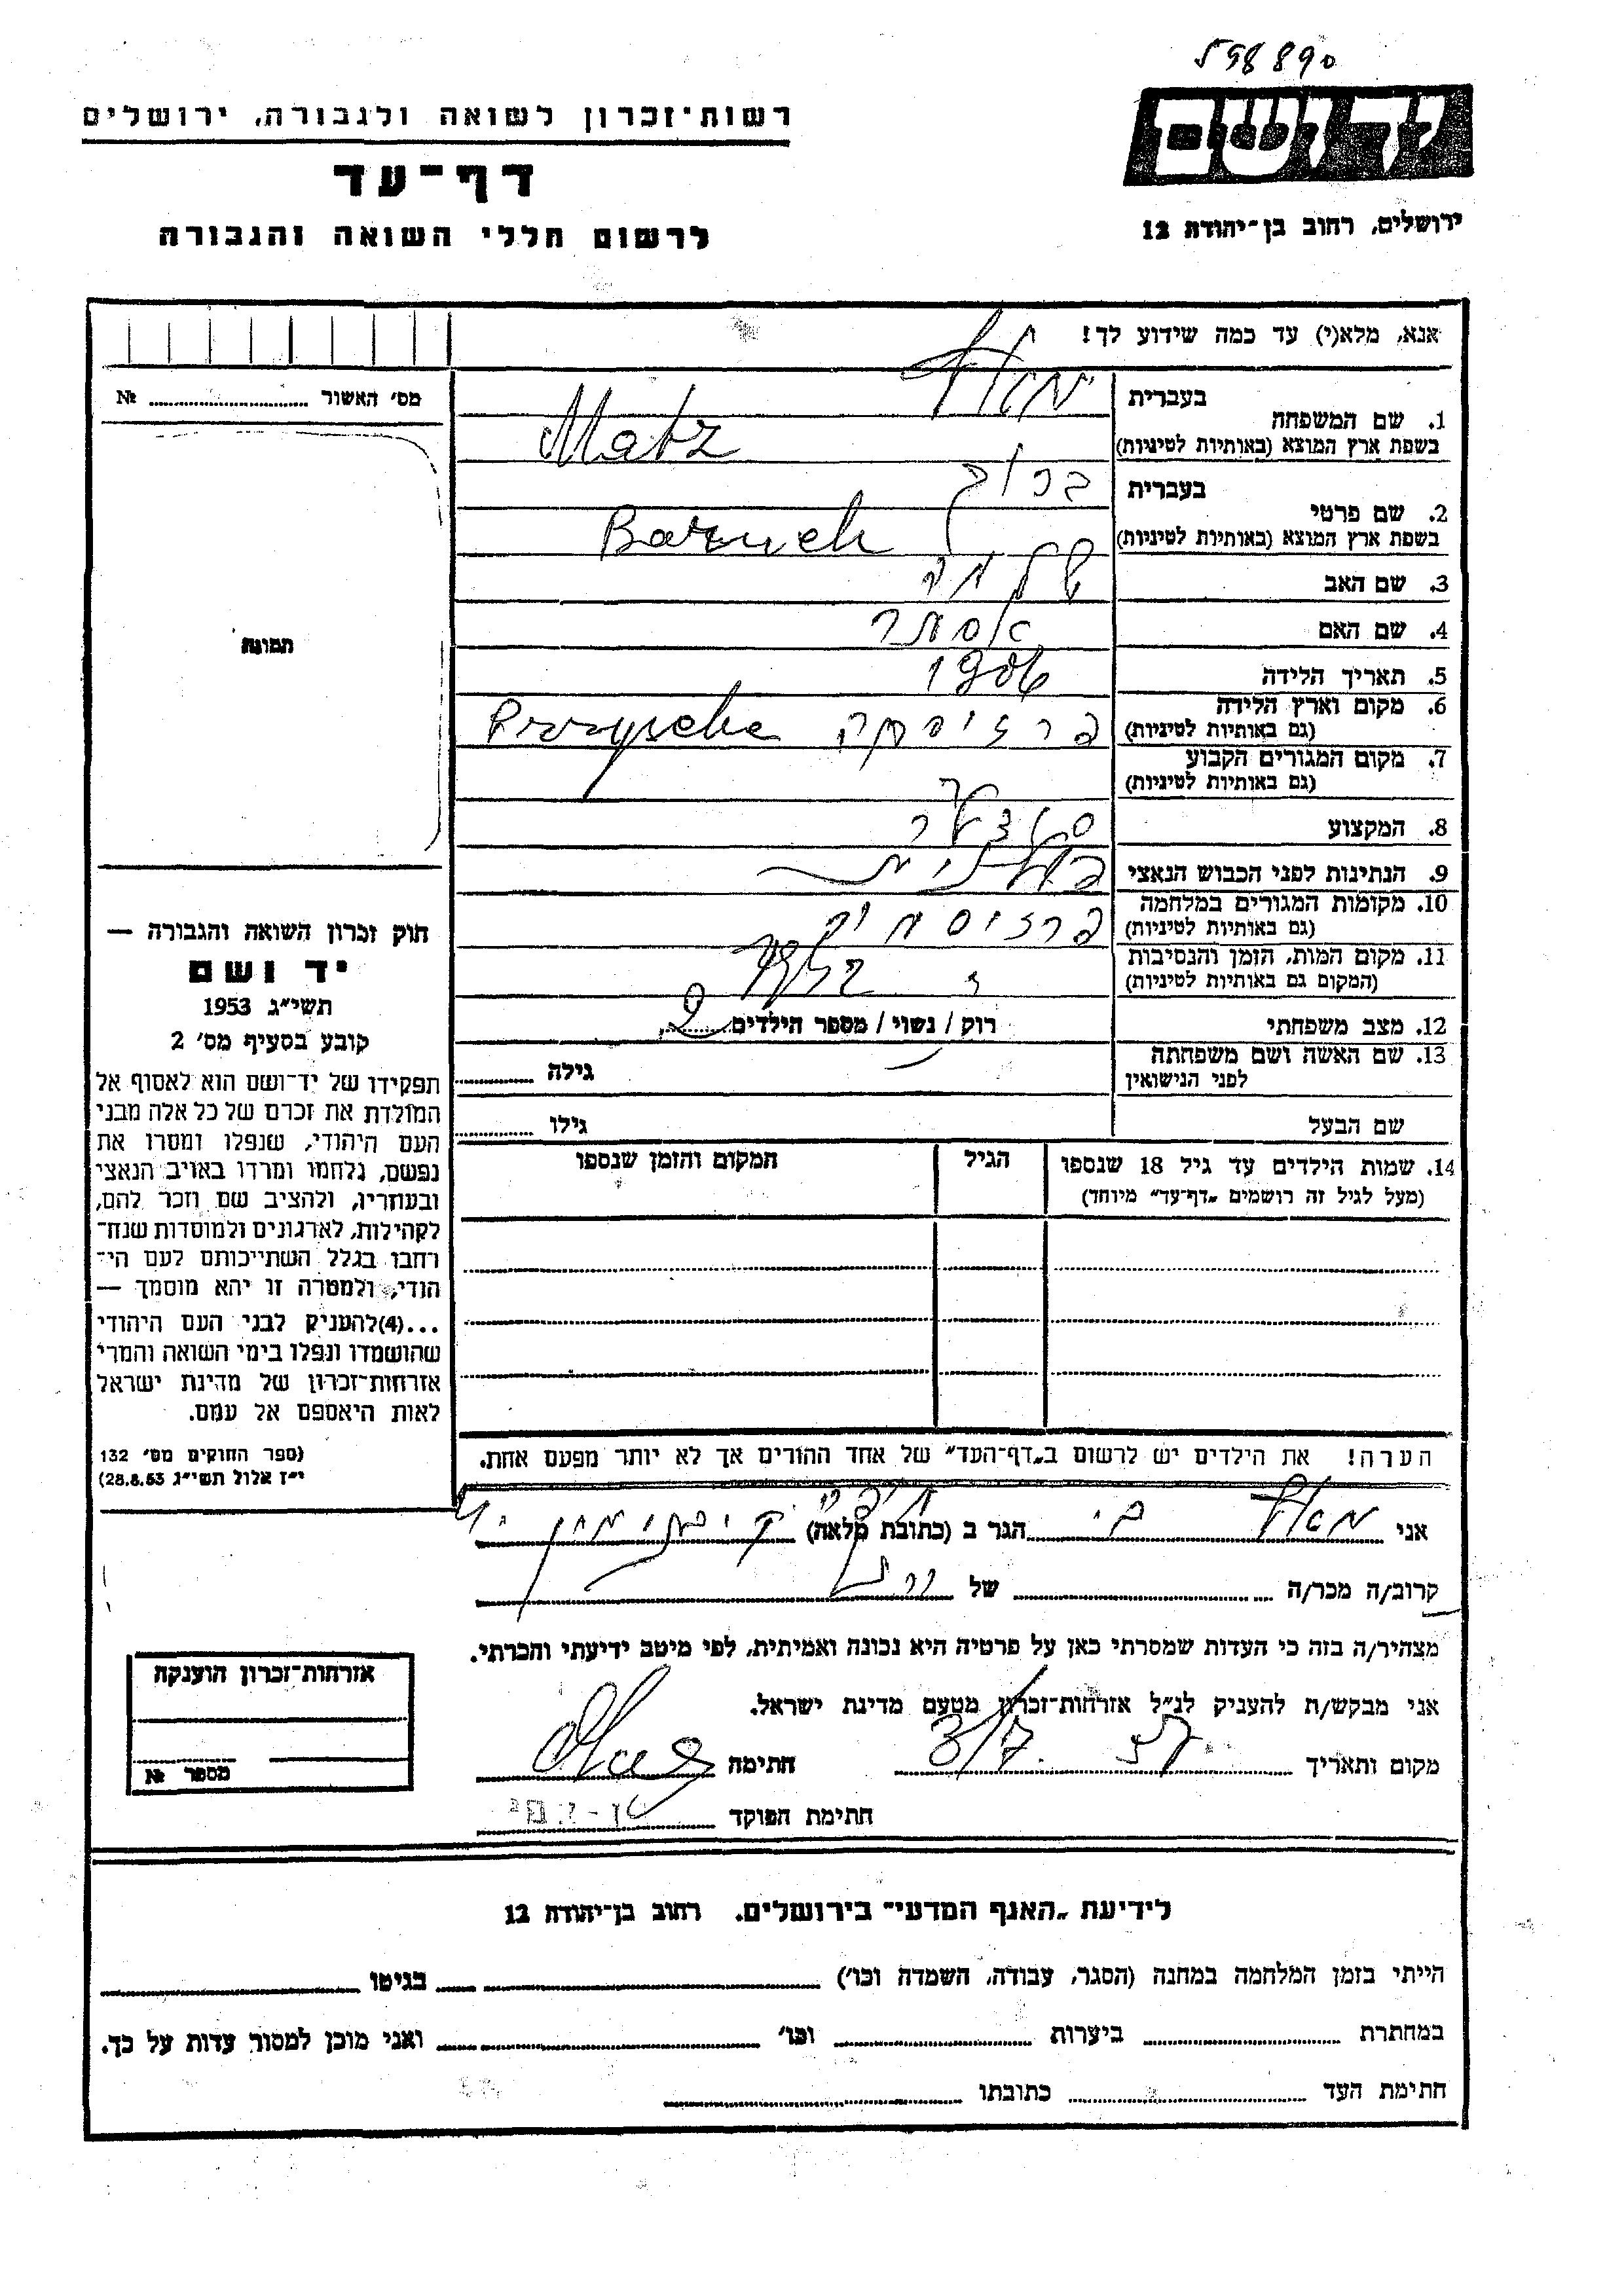 598890
יד ושם
ירושלים, רחוב בן־יהודה 12
רשות־זכרון לשואה ולגבורה, ירושלים
דף־עד
לרשום חללי השואה והגבורה
אנא, מלא(י) עד כמה שידוע לך!
1. שם המשפחה
בעברית
בשפת ארץ המוצא (באותיות לטיניות) Matz
2. שם פרטי
בעברית ברוך
בשפת ארץ המוצא (באותיות לטיניות) Baruch
3. שם האב שלמה
4. שם האם אסתר
5. תאריך הלידה 1906
6. מקום וארץ הלידה
(גם באותיות לטיניות) פרזיסחה
7. מקום המגורים הקבוע
(גם באותיות לטיניות)
8. המקצוע
9. הנתינות לפני הכבוש הנאצי פולנית
10. מקומות המגורים במלחמה
(גם באותיות לטיניות)
11. מקום המות, הזמן והנסיבות
(המקום גם באותיות לטיניות)
12. מצב משפחתי רוק / נשוי / מספר הילדים 2
13. שם האשה ושם משפחתה
לפני הנישואין
גילה
שם הבעל גילו
14. שמות הילדים עד גיל 18 שנספו הגיל המקום והזמן שנספו
(מעל לגיל זה רושמים „דף־עד” מיוחד)
הערה! את הילדים יש לרשום ב„דף־העד” של אחד ההורים אך לא יותר מפעם אחת.
מס׳ האשור №
תמונה
חוק זכרון השואה והגבורה —
יד ושם
תשי״ג 1953
קובע בסעיף מס׳ 2
תפקידו של יד־ושם הוא לאסוף אל
המולדת את זכרם של כל אלה מבני
העם היהודי, שנפלו ומסרו את
נפשם, נלחמו ומרדו באויב הנאצי
ובעוזריו, ולהציב שם וזכר להם,
לקהילות, לארגונים ולמוסדות שנח־
רחבו בגלל השתייכותם לעם הי־
הודי, ולמטרה זו יהא מוסמך —
...(4)להעניק לבני העם היהודי
שהושמדו ונפלו בימי השואה והמרי
אזרחות־זכרון של מדינת ישראל
לאות היאספם אל עמם.
(ספר החוקים מס׳ 132
י״ז אלול תשי״ג 28.8.53)
אני הגר ב (כתובת מלאה)
קרוב/ה מכר/ה של
מצהיר/ה בזה כי העדות שמסרתי כאן על פרטיה היא נכונה ואמיתית, לפי מיטב ידיעתי והכרתי.
אני מבקש/ת להעניק לנ״ל אזרחות־זכרון מטעם מדינת ישראל.
מקום ותאריך חתימה
חתימת הפוקד
אזרחות־זכרון הוענקה
מספר №
לידיעת „האגף המדעי” בירושלים. רחוב בן־יהודה 12
הייתי בזמן המלחמה במחנה (הסגר, עבודה, השמדה וכו׳) בגיטו
במחתרת ביערות וכו׳ ואני מוכן למסור עדות על כך.
חתימת העד כתובתו